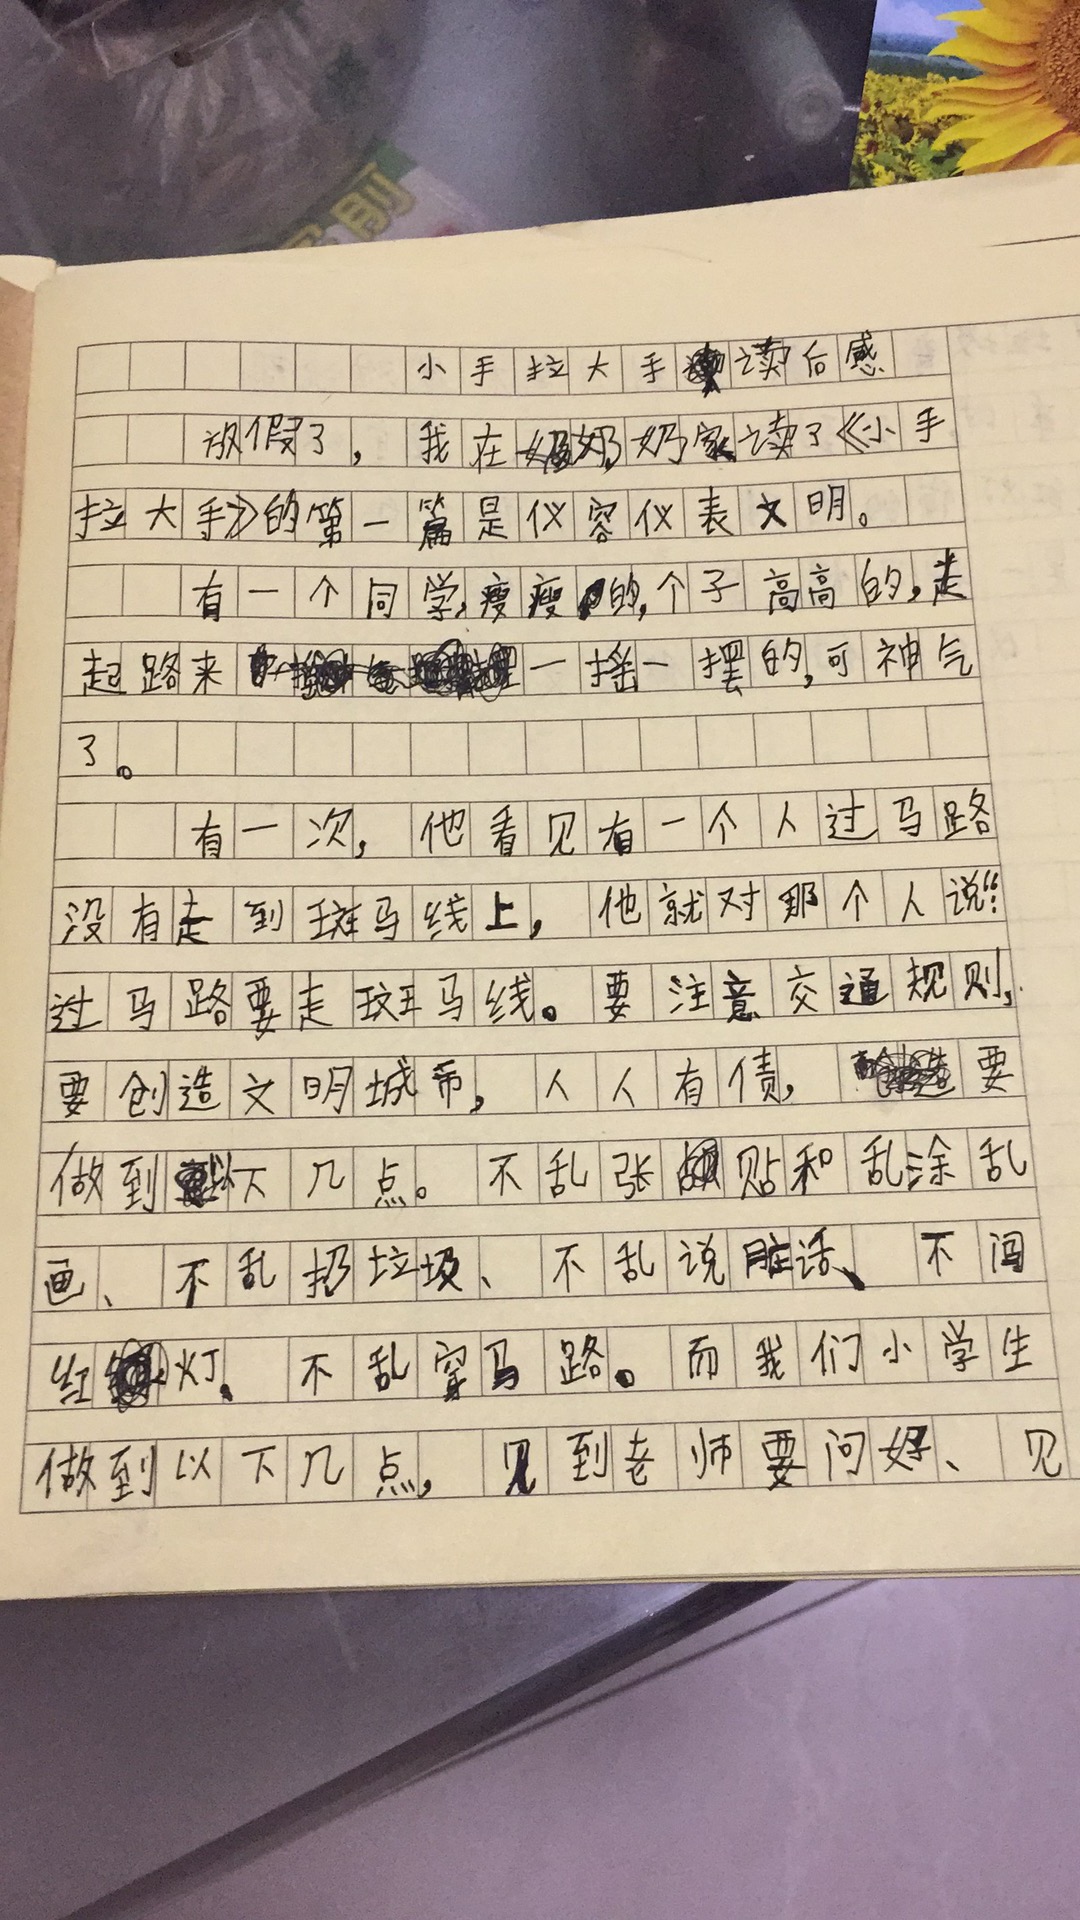 小手拉大手读后感
放假了，我在奶奶家读了《小手
拉大手》的第一篇是仪容仪表文明。
有一个同学，瘦瘦的，个子高高的，走
起路来一摇一摆的，可神气
了。
有一次，他看见有一个人过马路
没有走到斑马线上，他就对那个人说：“
过马路要走斑马线。要注意交通规则，
要创造文明城市，人人有债，要
做到以下几点。不乱张贴和乱涂乱
画、不乱扔垃圾、不乱说脏话、不闯
红灯、不乱穿马路。而我们小学生
做到以下几点，见到老师要问好、见